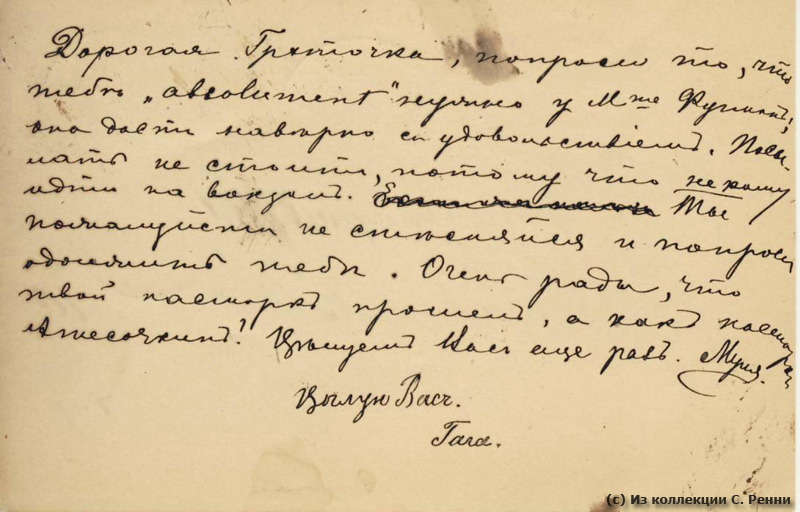 Дорогая Грэточка, попроси то, что
тебѣ „absolument“ нужно у Мᵐᵉ
она дастъ навѣрно съ удовольствіемъ. Посы-
лать не стоитъ, потому что некому
идти на вокзалъ. Ты
пожалуйста не стѣсняйся и попроси
одолжить тебѣ. Очень рады, что
твой насморкъ прошелъ, а какъ насморкъ
Цѣлуемъ Васъ еще разъ. Муся.
Цѣлую Васъ.
Тата.
(c) Из коллекции С. Ренни